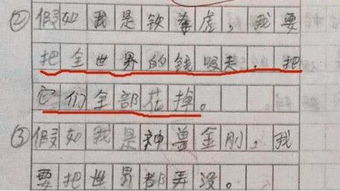 ②假如我是铁拳虎，我要
把全世界的钱吸来，把
它们全部花掉。
③假如我是神兽金刚，我
要把世界都弄没。